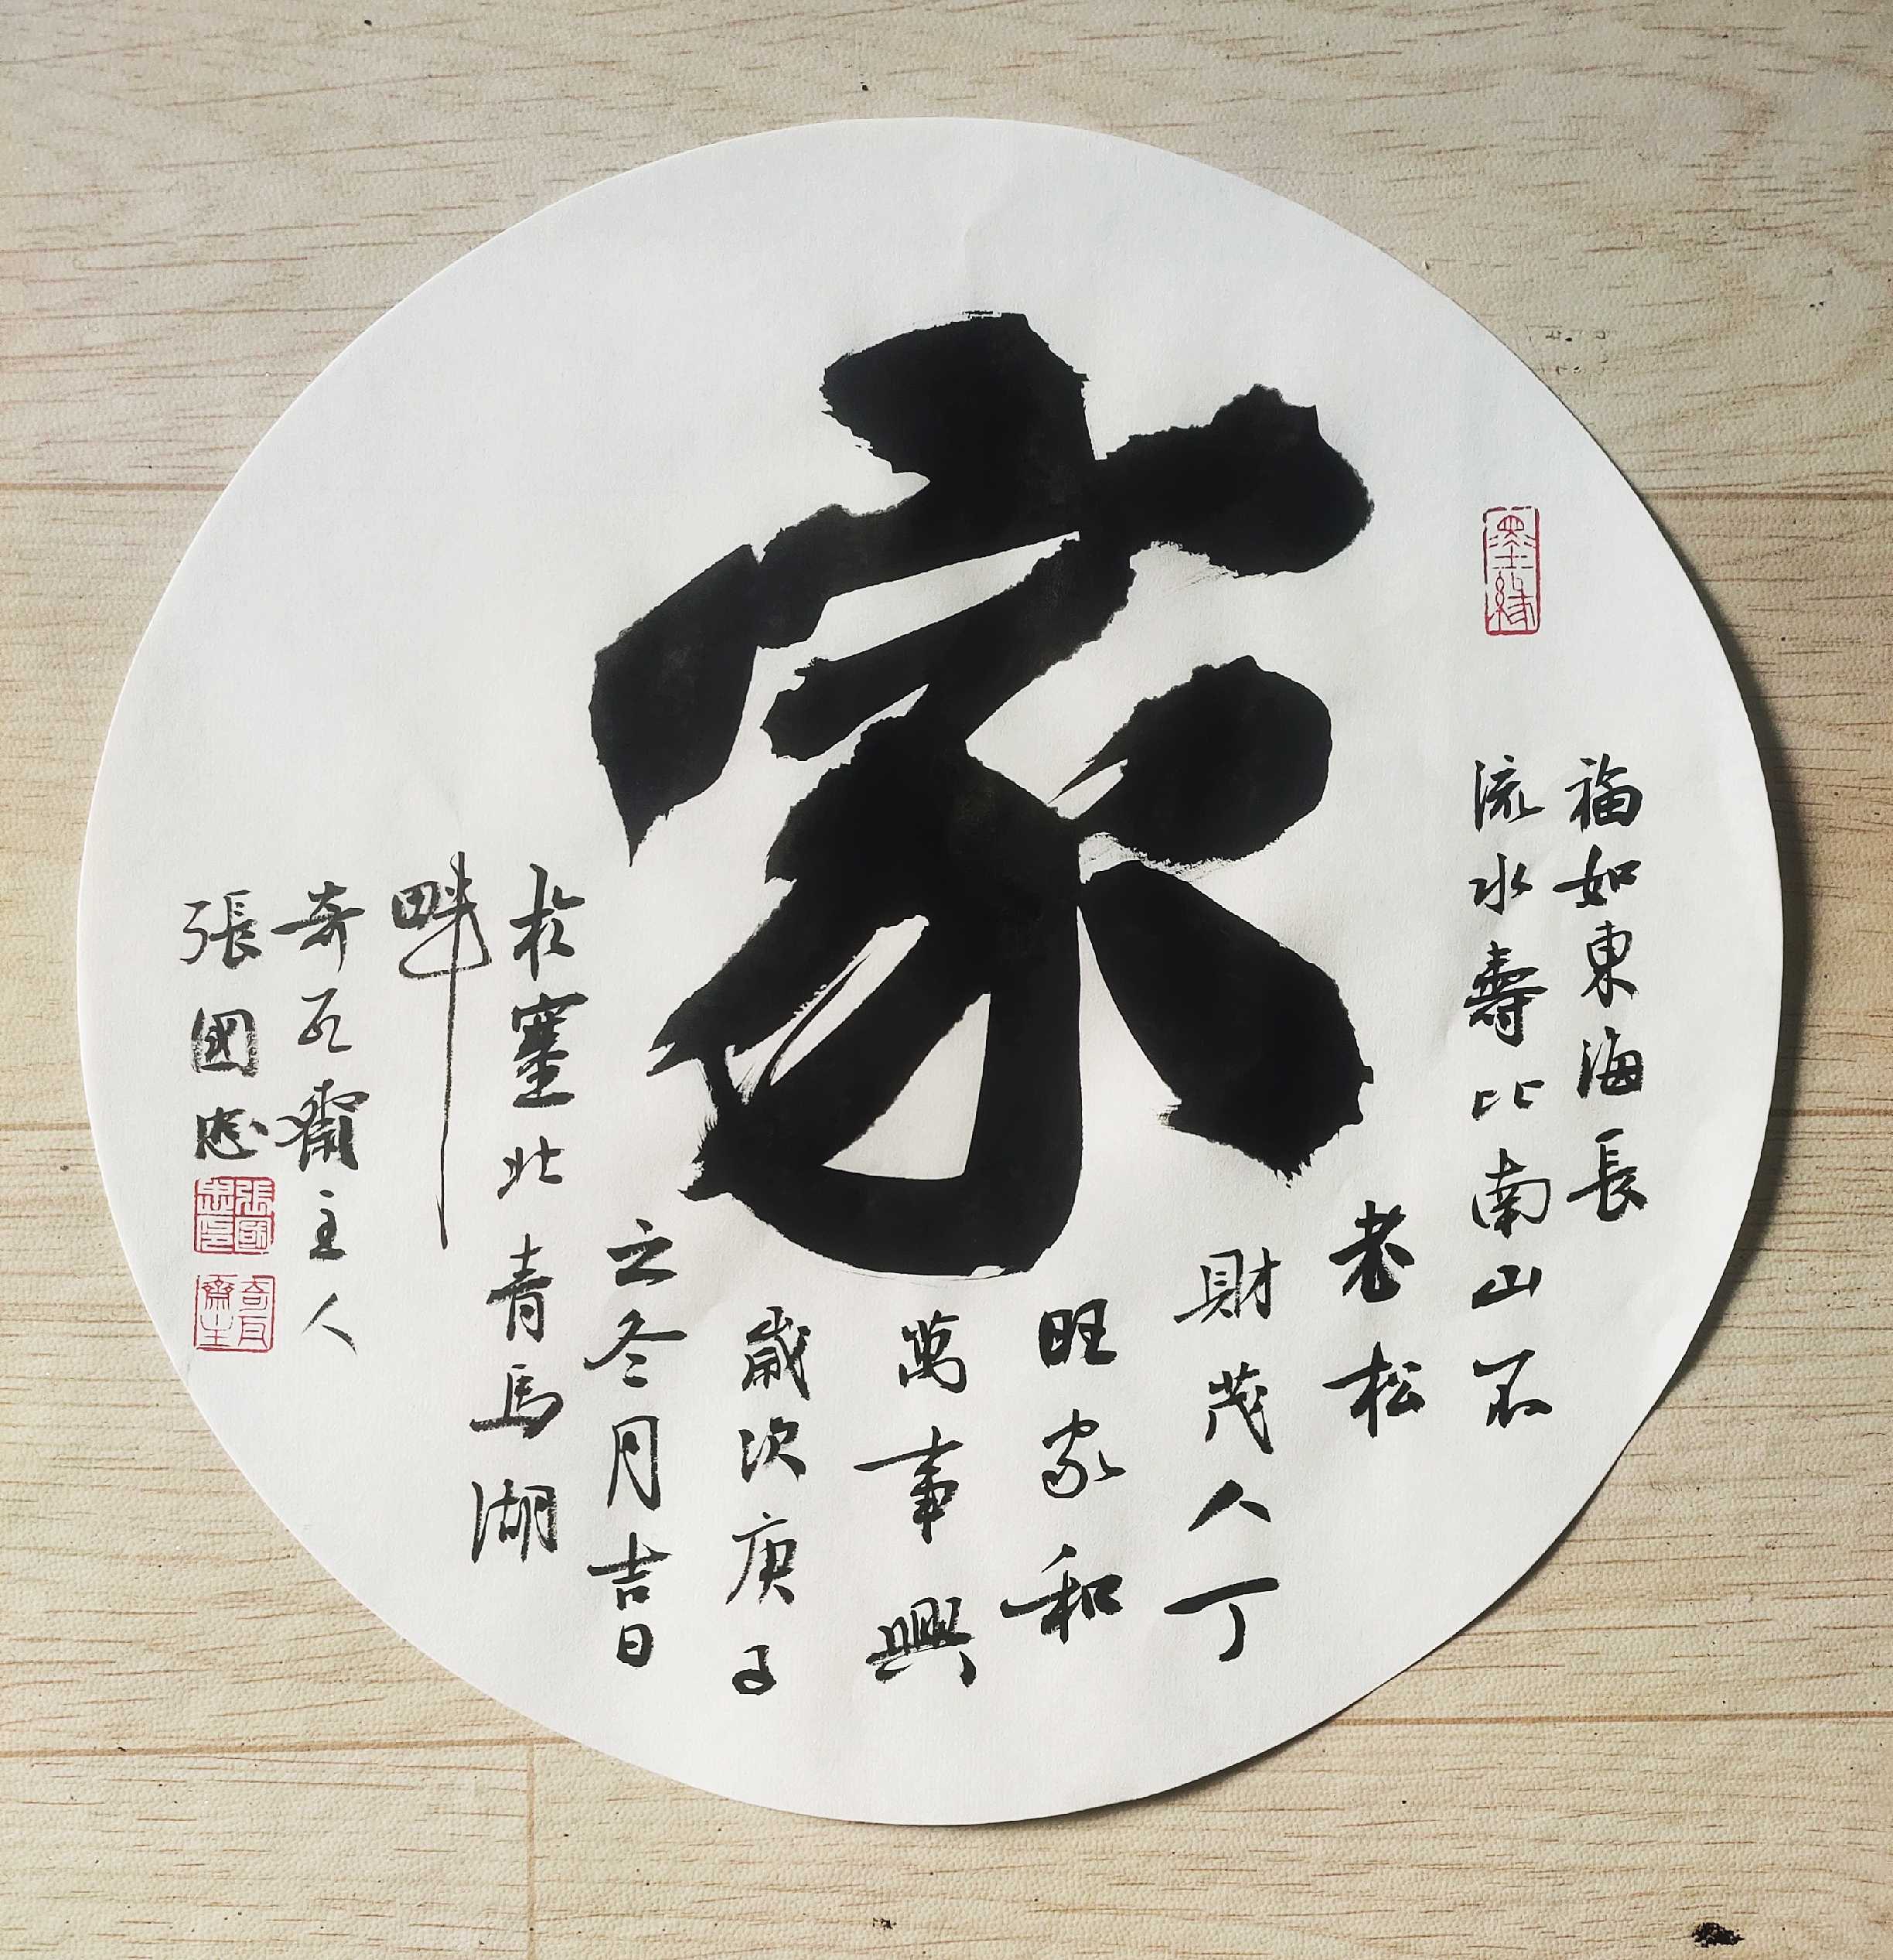 家
福如東海長
流水壽比南山不
老松
財茂人丁
旺家和
萬事興
歲次庚子
之冬月吉日
於塞北青馬湖
畔
奇石齋主人
張國忠
墨緣
張國忠印
奇石齋主